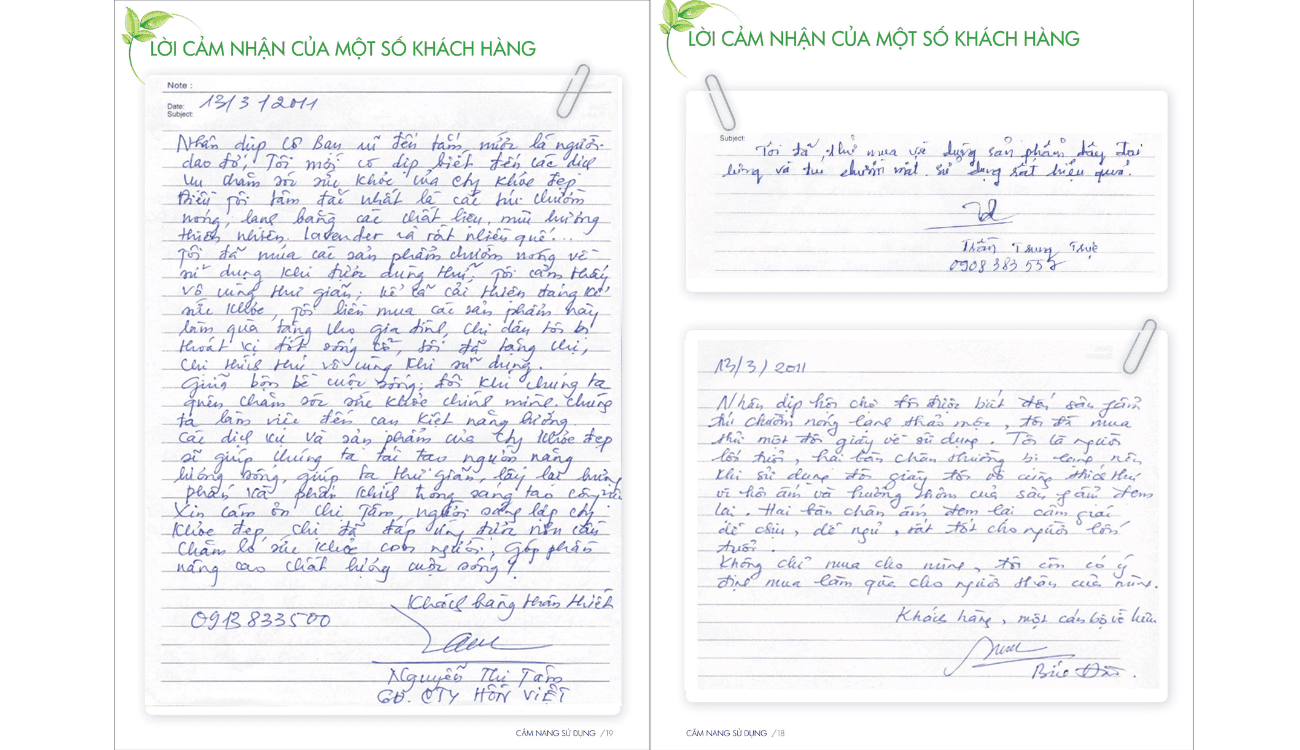 LỜI CẢM NHẬN CỦA MỘT SỐ KHÁCH HÀNG
Note :
Date: 13/3/2011
Subject:
Nhân dịp cô bạn rủ đến tắm, mước lá người
dao đỏ, Tôi mới có dịp biết đến các dịch
vụ chăm sóc sức khỏe của cty Khỏe đẹp
Điều tôi tâm đắc nhất là các túi chườm
nóng, lạnh bằng các chất liệu, mùi hương
thiên nhiên. lavender và rất nhiều quế...
Tôi đã mua các sản phẩm chườm nóng về
sử dụng khi được dùng thử, tôi cảm thấy
vô cùng thư giãn; kể cả cải thiện đáng kể
sức khỏe, tôi liền mua các sản phẩm này
làm quà tặng cho gia đình, chị dâu tôi bị
thoát vị đốt sống cổ, tôi đã tặng chị,
chị thích thú vô cùng khi sử dụng.
Giữa bộn bề cuộc sống, đôi khi chúng ta
quên chăm sóc sức khỏe chính mình. chúng
ta làm việc đến cạn kiệt năng lượng.
Các dịch vụ và sản phẩm của cty Khỏe đẹp
sẽ giúp chúng ta tái tạo nguồn năng
lượng sống, giúp ta thư giãn, lấy lại hưng
phấn và phấn khích trong sáng tạo công việc
Xin cám ơn chị Tâm, người sáng lập cty
Khỏe đẹp, chị đã đáp ứng được nhu cầu
chăm lo sức khỏe con người, góp phần
nâng cao chất lượng cuộc sống!
Khách hàng thân thiết
0913833500
Nguyễn Thị Tâm
GĐ. CTY HỒN VIỆT
CẨM NANG SỬ DỤNG /19
LỜI CẢM NHẬN CỦA MỘT SỐ KHÁCH HÀNG
Subject:
Tôi đã thử mua về dụng sản phẩm đây đai
lưng và túi chườm mắt. sử dụng rất hiệu quả.
Trần Trung Trực
0908 383 557
13/3/2011
Nhân dịp hội chợ tôi được biết đến sản phẩm
túi chườm nóng lạnh thảo mộc, tôi đã mua
thử một đôi giầy về sử dụng. Tôi là người
lớn tuổi, hai bàn chân thường bị lạnh nên
khi sử dụng đôi giầy tôi vô cùng thích thú
vì hơi ấm và hương thơm của sản phẩm đem
lại. Hai bàn chân ấm đem lại cảm giác
dễ chịu, dễ ngủ, rất tốt cho người lớn
tuổi.
Không chỉ mua cho mình, tôi còn có ý
định mua làm quà cho người thân của mình.
Khách hàng, một cán bộ về hưu
CẨM NANG SỬ DỤNG /18